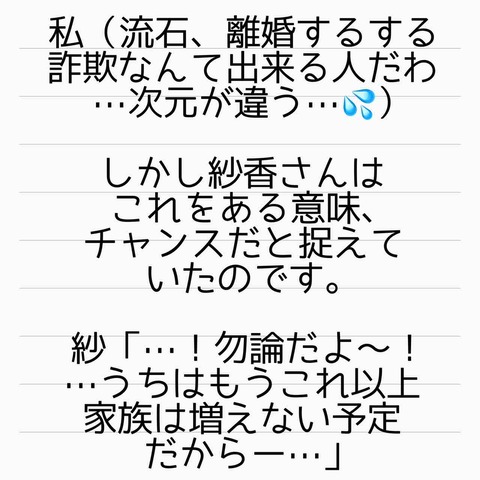 私（流石、離婚するする
詐欺なんて出来る人だわ
…次元が違う…💦）
しかし紗香さんは
これをある意味、
チャンスだと捉えて
いたのです。
紗「…！勿論だよ〜！
…うちはもうこれ以上
家族は増えない予定
だからー…」